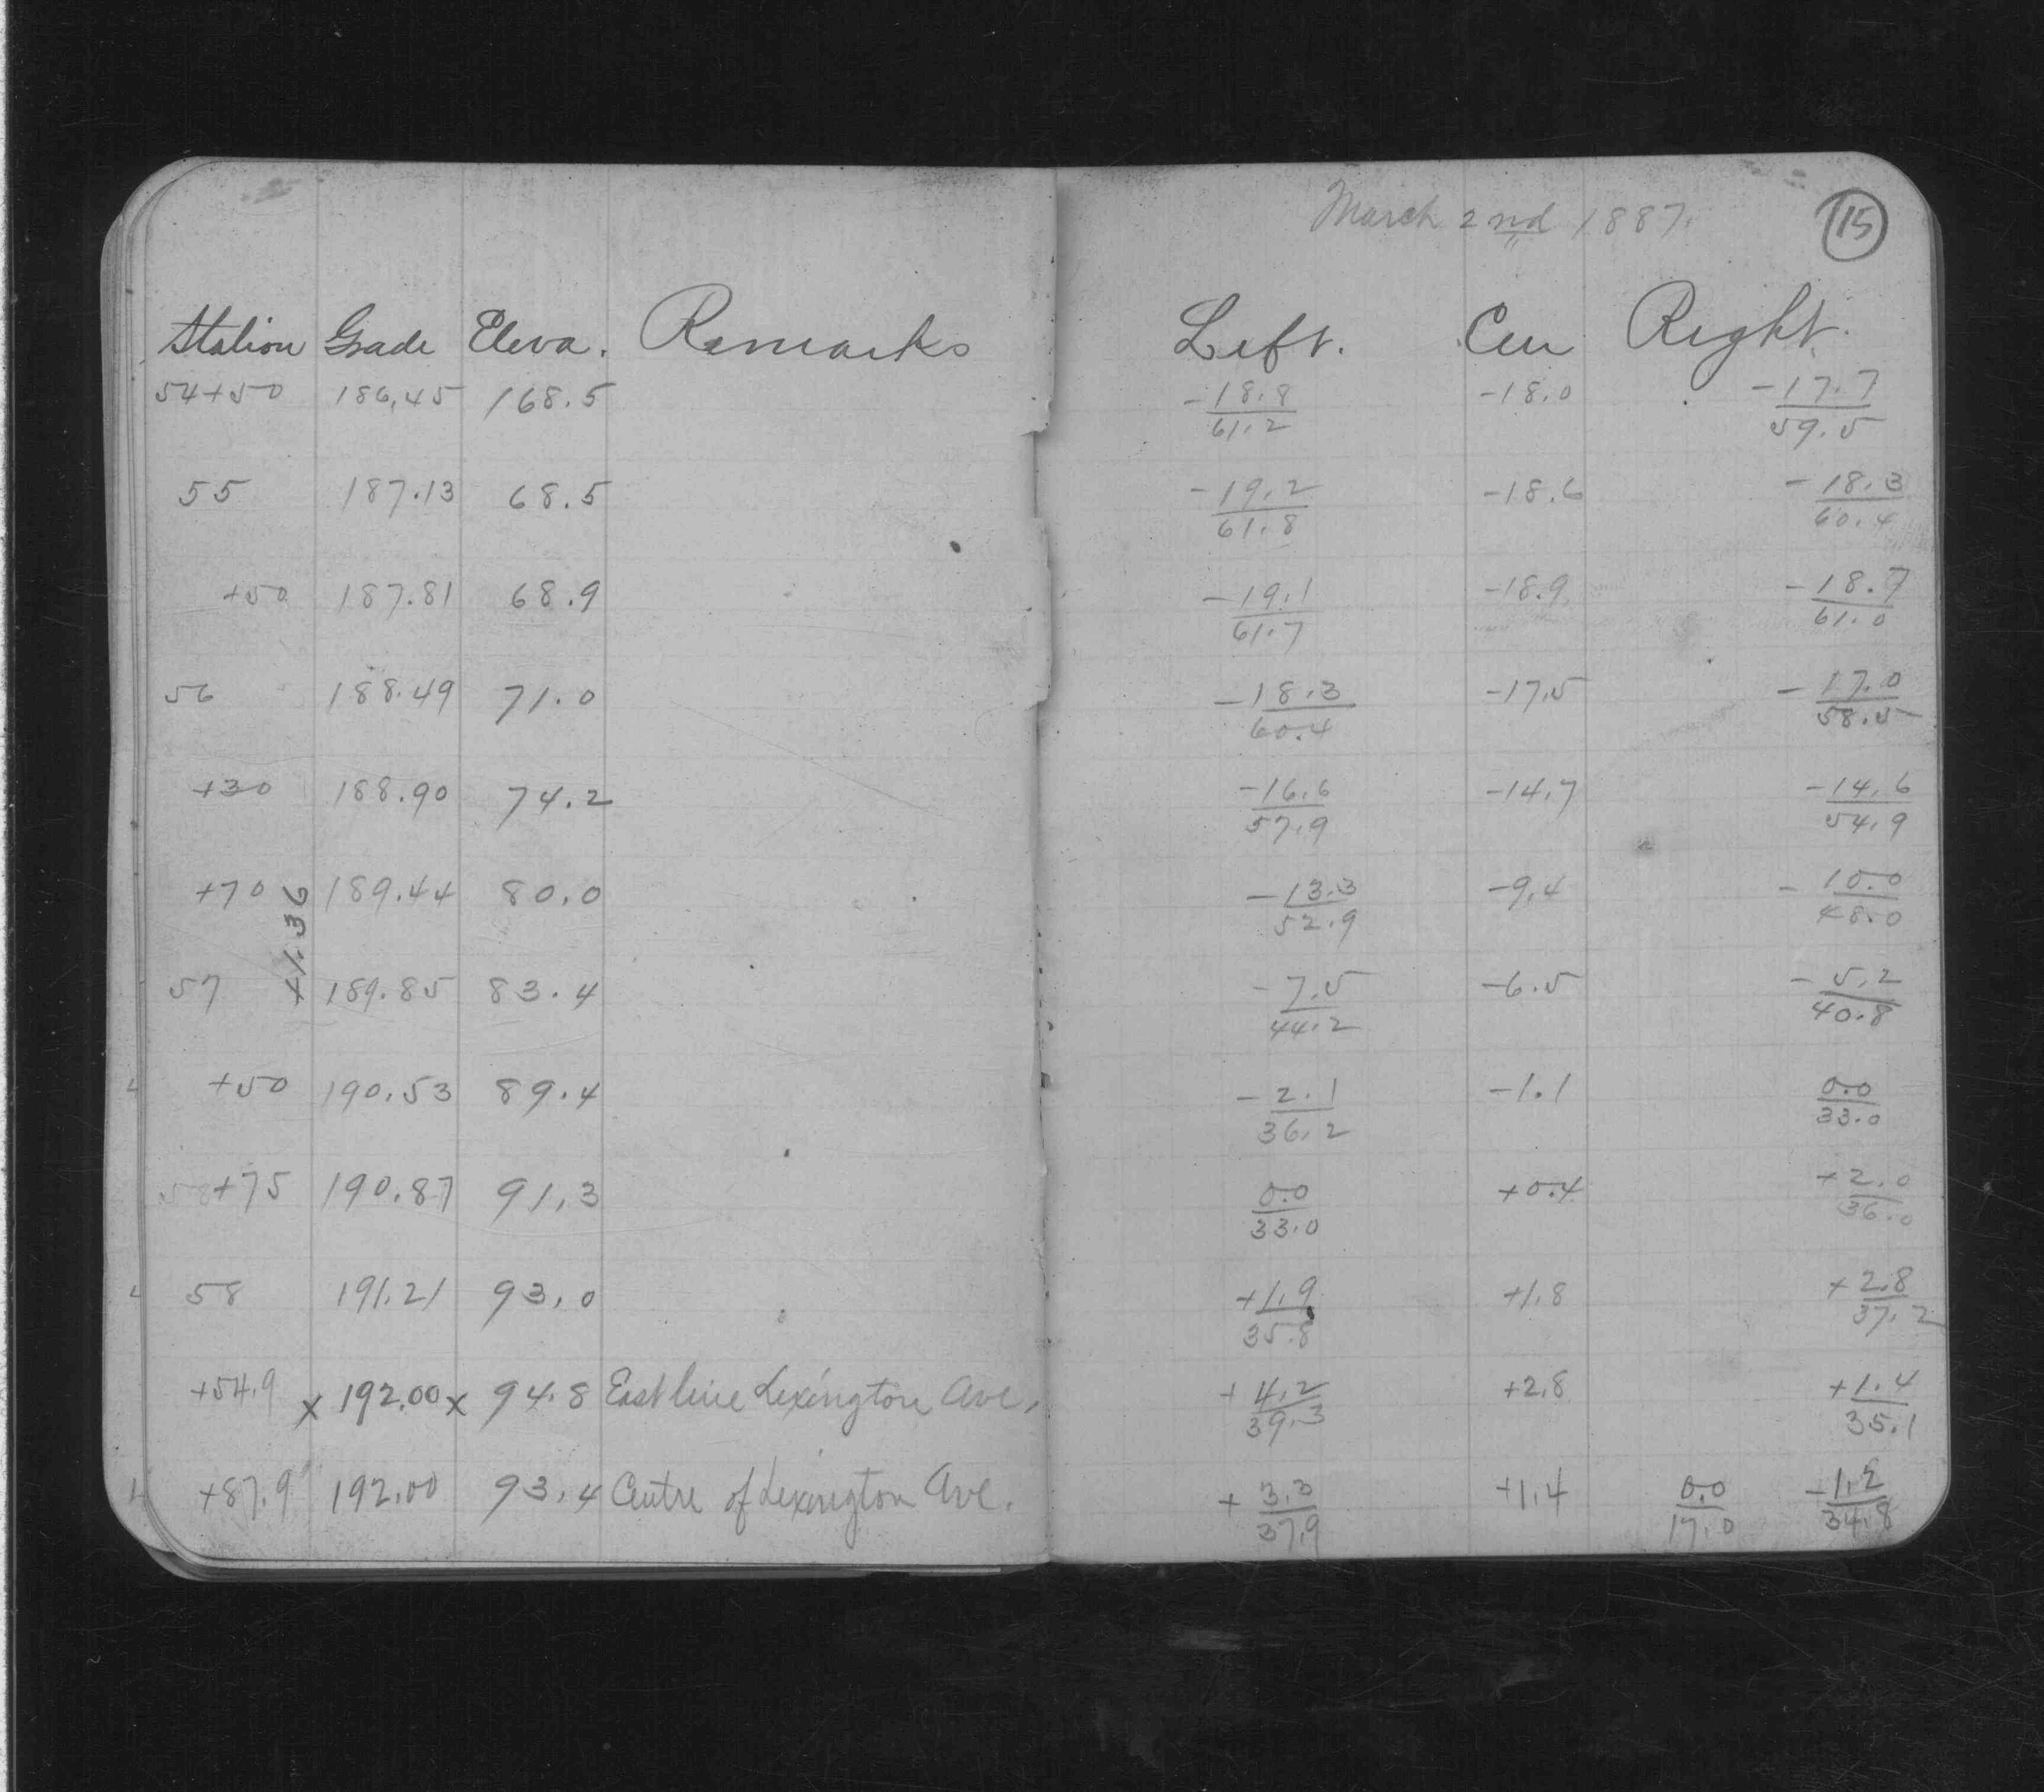 March 2nd 1887. 15
Station Grade Eleva. Remarks Left. Cen Right.
54+50 186.45 168.5 -18.8/61.2 -18.0 -17.7/59.5
55 187.13 68.5 -19.2/61.8 -18.6 -18.3/60.4
+50 187.81 68.9 -19.1/61.7 -18.9 -18.7/61.0
56 188.49 71.0 -18.3/60.4 -17.5 -17.0/58.5
+30 188.90 74.2 -16.6/57.9 -14.7 -14.6/54.9
+70 189.44 80.0 -13.3/52.9 -9.4 -10.0/48.0
+1.36
57 189.85 83.4 -7.5/44.2 -6.5 -5.2/40.8
+50 190.53 89.4 -2.1/36.2 -1.1 0.0/33.0
+75 190.87 91.3 0.0/33.0 +0.4 +2.0/36.0
58 191.21 93.0 +1.9/35.8 +1.8 +2.8/37.2
+54.9 x 192.00 x 94.8 East line Lexington Ave. +4.2/39.3 +2.8 +1.4/35.1
+87.9 192.00 93.4 Centre of Lexington Ave. +3.3/37.9 +1.4 0.0/17.0 -1.2/34.8